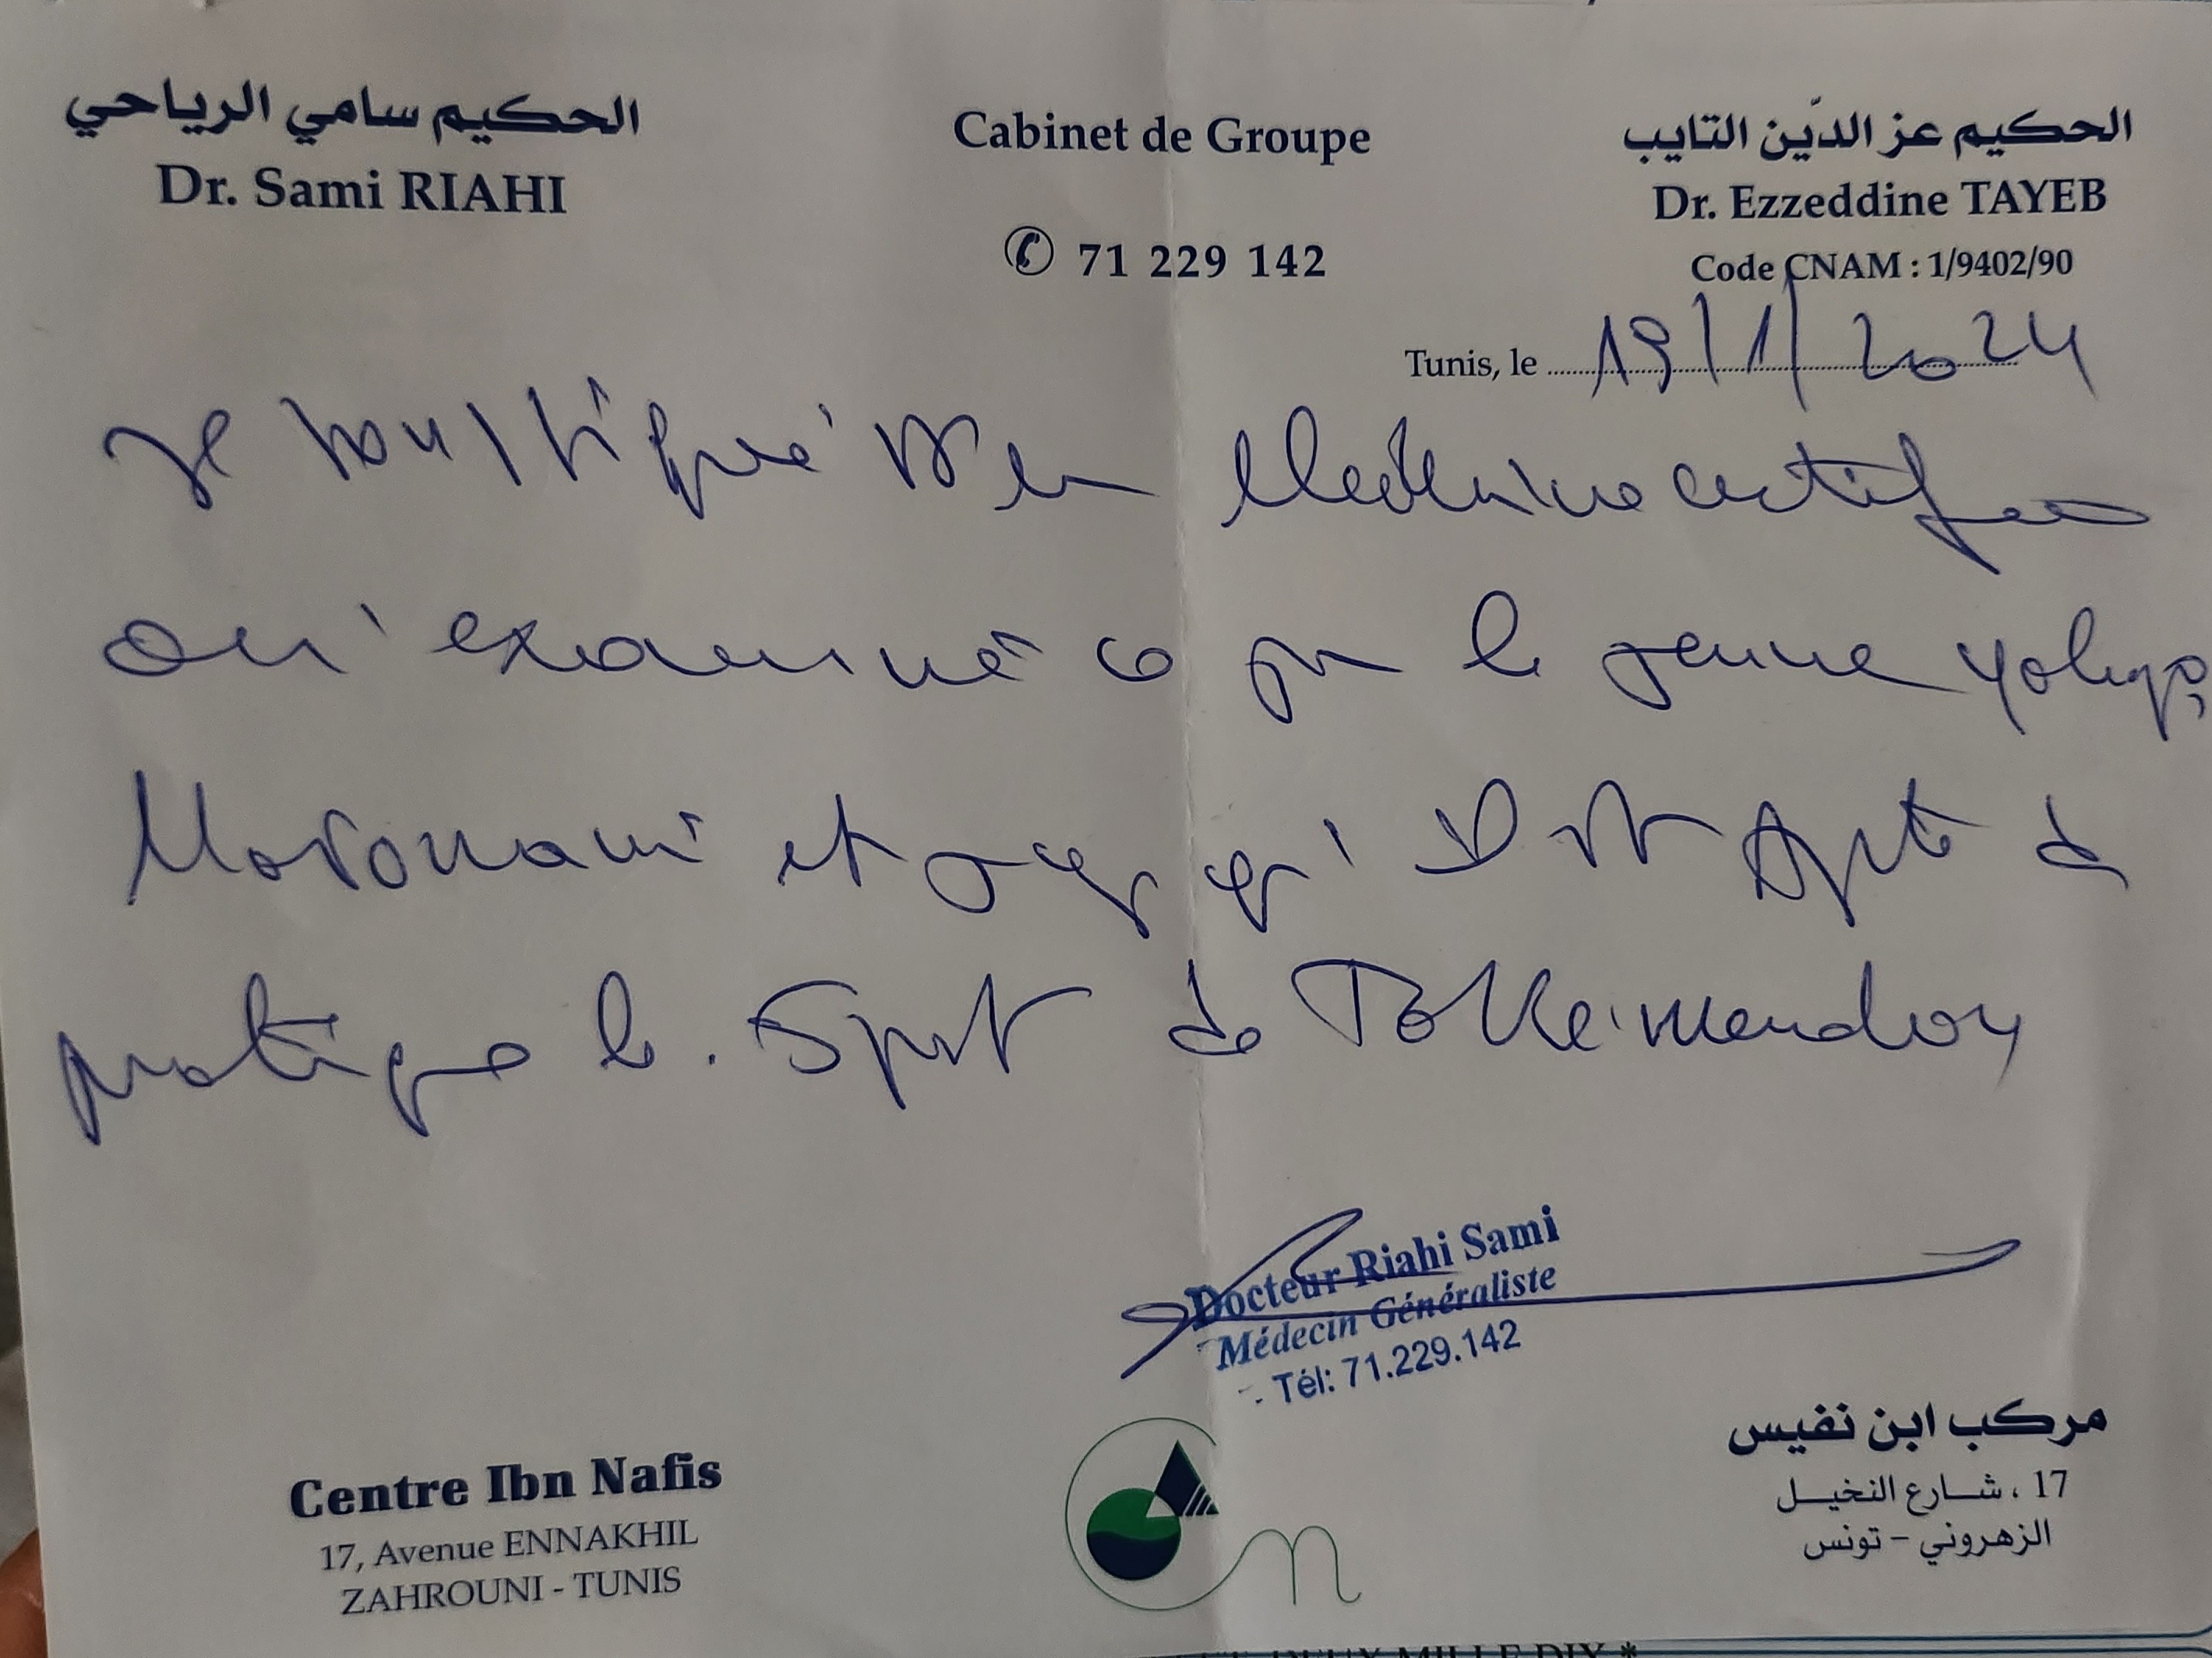 الحكيم سامي الرياحي
Dr. Sami RIAHI
Cabinet de Groupe
71 229 142
الحكيم عز الدّين التايب
Dr. Ezzeddine TAYEB
Code CNAM : 1/9402/90
Tunis, le 19/1/2024
Je soussigné Dr en Médecine certifie
avoir examiné ce jour le jeune
et que qu'il est Apte à
pratique le Sport de
Docteur Riahi Sami
Médecin Généraliste
Tél: 71.229.142
Centre Ibn Nafis
17, Avenue ENNAKHIL
ZAHROUNI - TUNIS
مركب ابن نفيس
17 ، شارع النخيل
الزهروني - تونس